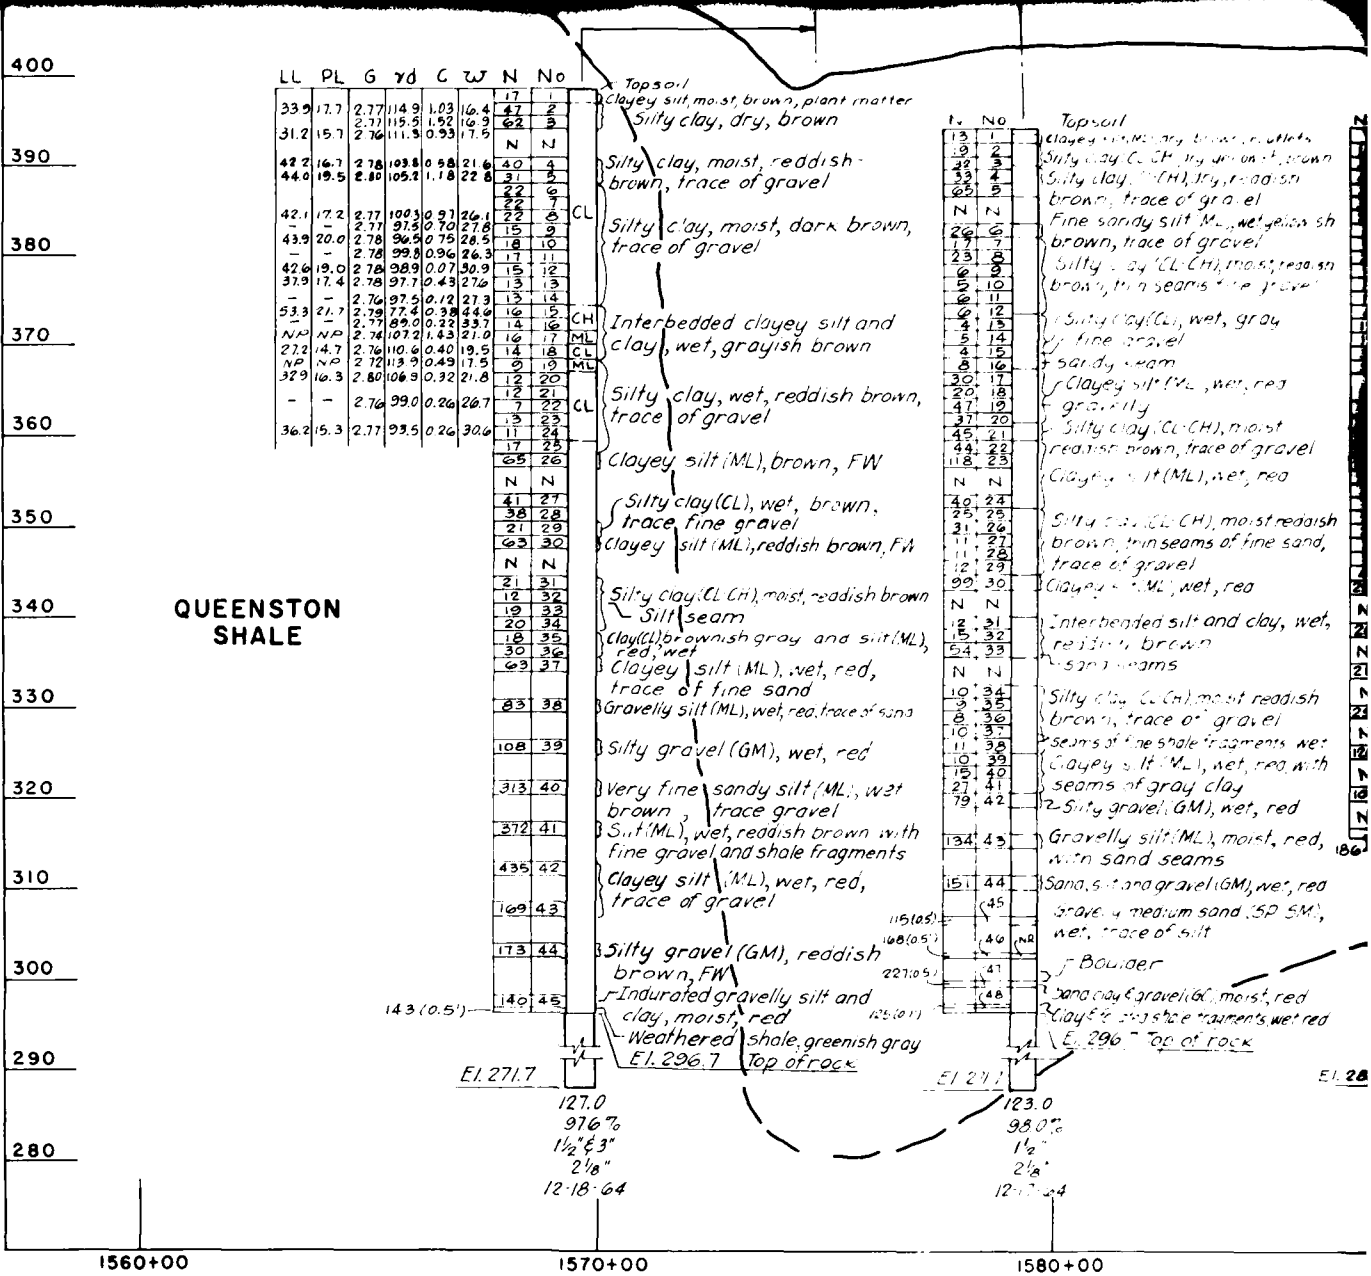 400
390
380
370
360
350
340
330
320
310
300
290
280
QUEENSTON
SHALE
LL PL G γd C W N No
17 1
33.9 17.7 2.77 114.9 1.03 16.4 47 2
2.77 115.5 1.52 16.9 62 3
31.2 15.7 2.76 111.3 0.93 17.5
N N
42.2 16.7 2.78 103.8 0.58 21.6 40 4
44.0 19.5 2.80 105.2 1.18 22.8 31 5
22 6
22 7
42.1 17.2 2.77 100.3 0.97 26.1 22 8
- - 2.77 97.5 0.70 27.8 15 9
43.9 20.0 2.78 96.5 0.75 28.5 18 10
- - 2.78 99.8 0.96 26.3 17 11
42.6 19.0 2.78 98.9 0.07 30.9 15 12
37.9 17.4 2.78 97.7 0.43 27.6 13 13
- - 2.76 97.5 0.12 27.3 13 14
53.3 21.7 2.79 77.4 0.38 44.6 16 15
- - 2.77 89.0 0.22 33.7 14 16
NP NP 2.74 107.2 1.43 21.0 16 17
27.2 14.7 2.76 110.6 0.40 19.5 14 18
NP NP 2.72 113.9 0.49 17.5 9 19
32.9 16.3 2.80 106.9 0.32 21.8 12 20
12 21
- - 2.76 99.0 0.26 26.7 7 22
13 23
36.2 15.3 2.77 93.5 0.26 30.6 11 24
17 25
65 26
N N
41 27
38 28
21 29
63 30
N N
21 31
12 32
19 33
20 34
18 35
30 36
63 37
83 38
108 39
313 40
372 41
435 42
169 43
173 44
140 45
143 (0.5')
CL
CH
ML
CL
ML
CL
Topsoil
Clayey silt, moist, brown, plant matter
Silty clay, dry, brown
Silty clay, moist, reddish-
brown, trace of gravel
Silty clay, moist, dark brown,
trace of gravel
Interbedded clayey silt and
clay, wet, grayish brown
Silty clay, wet, reddish brown,
trace of gravel
Clayey silt (ML), brown, FW
Silty clay (CL), wet, brown,
trace fine gravel
Clayey silt (ML), reddish brown, FW
Silty clay (CL-CH), moist, reddish brown
Silt seam
Clay (CL) brownish gray and silt (ML),
red, wet
Clayey silt (ML), wet, red,
trace of fine sand
Gravelly silt (ML), wet, red, trace of sand
Silty gravel (GM), wet, red
Very fine sandy silt (ML), wet
brown, trace gravel
Silt (ML), wet, reddish brown with
fine gravel and shale fragments
Clayey silt (ML), wet, red,
trace of gravel
Silty gravel (GM), reddish
brown, FW
Indurated gravelly silt and
clay, moist, red
Weathered shale, greenish gray
El. 296.7 Top of rock
El. 271.7
127.0
97.6%
1½" & 3"
2⅛"
12-18-64
N No
13 1
19 2
32 3
33 4
65 5
N N
26 6
17 7
23 8
6 9
5 10
6 11
6 12
4 13
5 14
4 15
8 16
30 17
20 18
47 19
37 20
45 21
44 22
118 23
N N
40 24
25 25
31 26
11 27
11 28
12 29
99 30
N N
12 31
15 32
54 33
N N
10 34
9 35
8 36
10 37
11 38
10 39
15 40
27 41
79 42
134 43
151 44
45
115 (0.5)
168 (0.5') 46 NR
227 (0.5) 47
48
Topsoil
Silty clay (CL-CH), dry, reddish
brown, trace of gravel
Fine sandy silt ML, wet yellowish
brown, trace of gravel
Silty clay (CL-CH), moist, reddish
brown, thin seams fine gravel
Silty clay (CL), wet, gray
fine gravel
sandy seam
Clayey silt (ML), wet, red
gravelly
Silty clay (CL-CH), moist
reddish brown, trace of gravel
Clayey silt (ML), wet, red
Silty clay (CL-CH), moist reddish
brown, thin seams of fine sand,
trace of gravel
Clayey silt (ML), wet, red
Interbedded silt and clay, wet,
reddish brown
sand seams
Silty clay (CL-CH), moist reddish
brown, trace of gravel
seams of fine shale fragments wet
Clayey silt (ML), wet, red, with
seams of gray clay
Silty gravel (GM), wet, red
Gravelly silt (ML), moist, red,
with sand seams
Sand, silt and gravel (GM), wet, red
Gravelly medium sand (SP-SM),
wet, trace of silt
Boulder
Sand clay & gravel (GC), moist, red
shale fragments, wet red
El. 296. Top of rock
123.0
98.0%
1½"
2⅛"
186
El. 28
1560+00
1570+00
1580+00